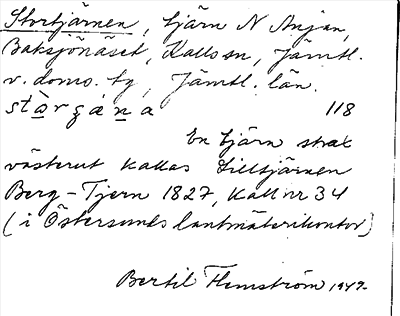 Stortjärnen, tjärn N Anjan,
Baksjönäset, Kalls sn, Jämtl.
v. doms. tg, Jämtl. län.
118
En tjärn strax
västerut kallas Lilltjärnen
Berg-Tjern 1827, Kall nr 34
(i Östersunds lantmäterikontor)
Bertil Flemström 1947.